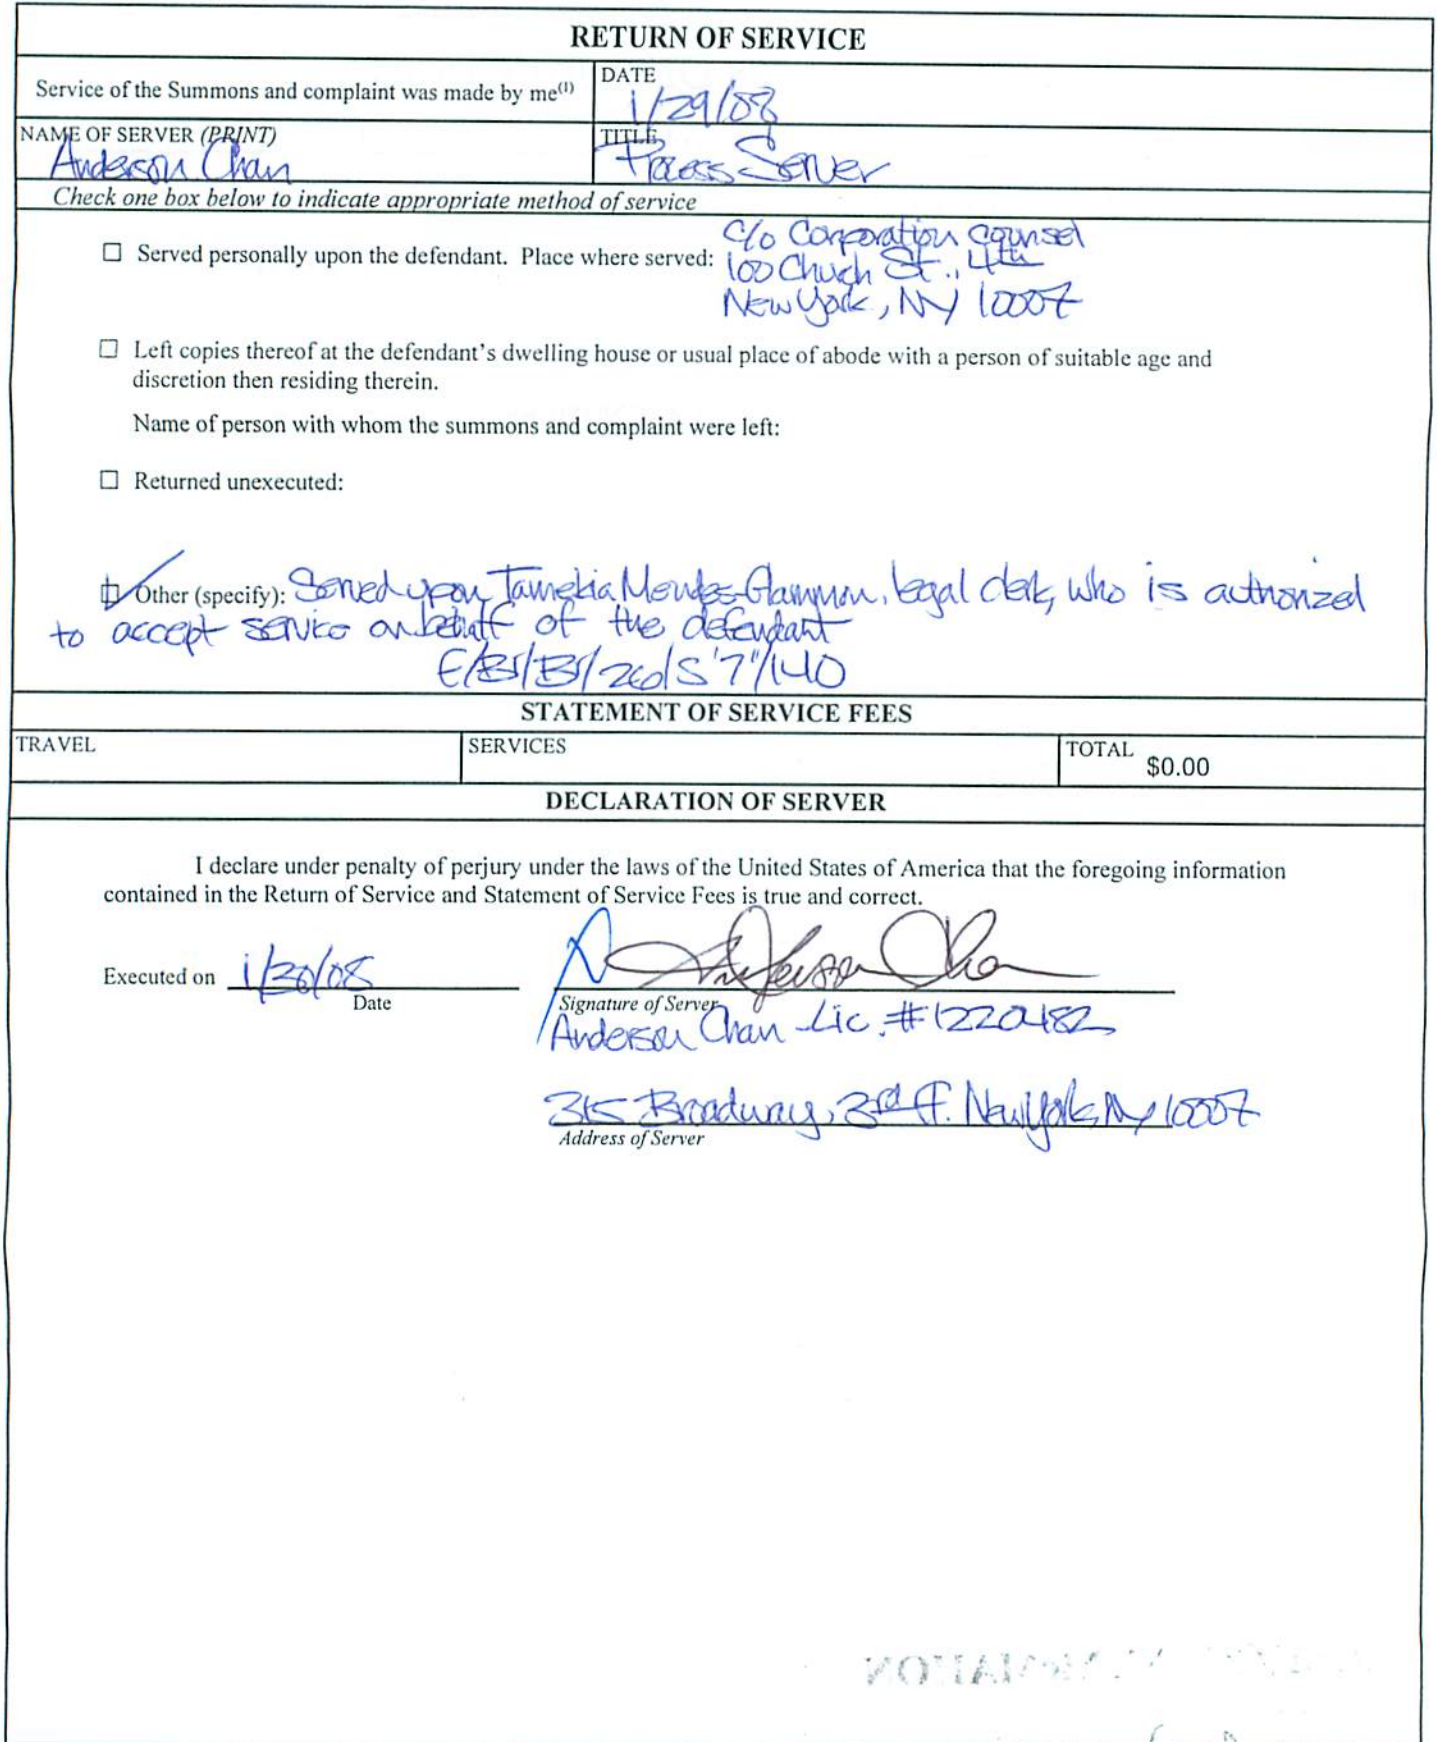 RETURN OF SERVICE
Service of the Summons and complaint was made by me(1)
DATE
1/29/08
NAME OF SERVER (PRINT)
Anderson Chan
TITLE
Process Server
Check one box below to indicate appropriate method of service
☐ Served personally upon the defendant. Place where served:
c/o Corporation Counsel
100 Church St., 4th
New York, NY 10007
☐ Left copies thereof at the defendant's dwelling house or usual place of abode with a person of suitable age and
discretion then residing therein.
Name of person with whom the summons and complaint were left:
☐ Returned unexecuted:
Other (specify): Served upon Tamekia Mendes-Gammon, legal clerk, who is authorized
to accept service on behalf of the defendant
STATEMENT OF SERVICE FEES
TRAVEL
SERVICES
TOTAL $0.00
DECLARATION OF SERVER
I declare under penalty of perjury under the laws of the United States of America that the foregoing information
contained in the Return of Service and Statement of Service Fees is true and correct.
Executed on 1/30/08
Date
Anderson Chan
Signature of Server
Anderson Chan - Lic. # 1220482
315 Broadway, 3rd Fl. New York, NY 10007
Address of Server